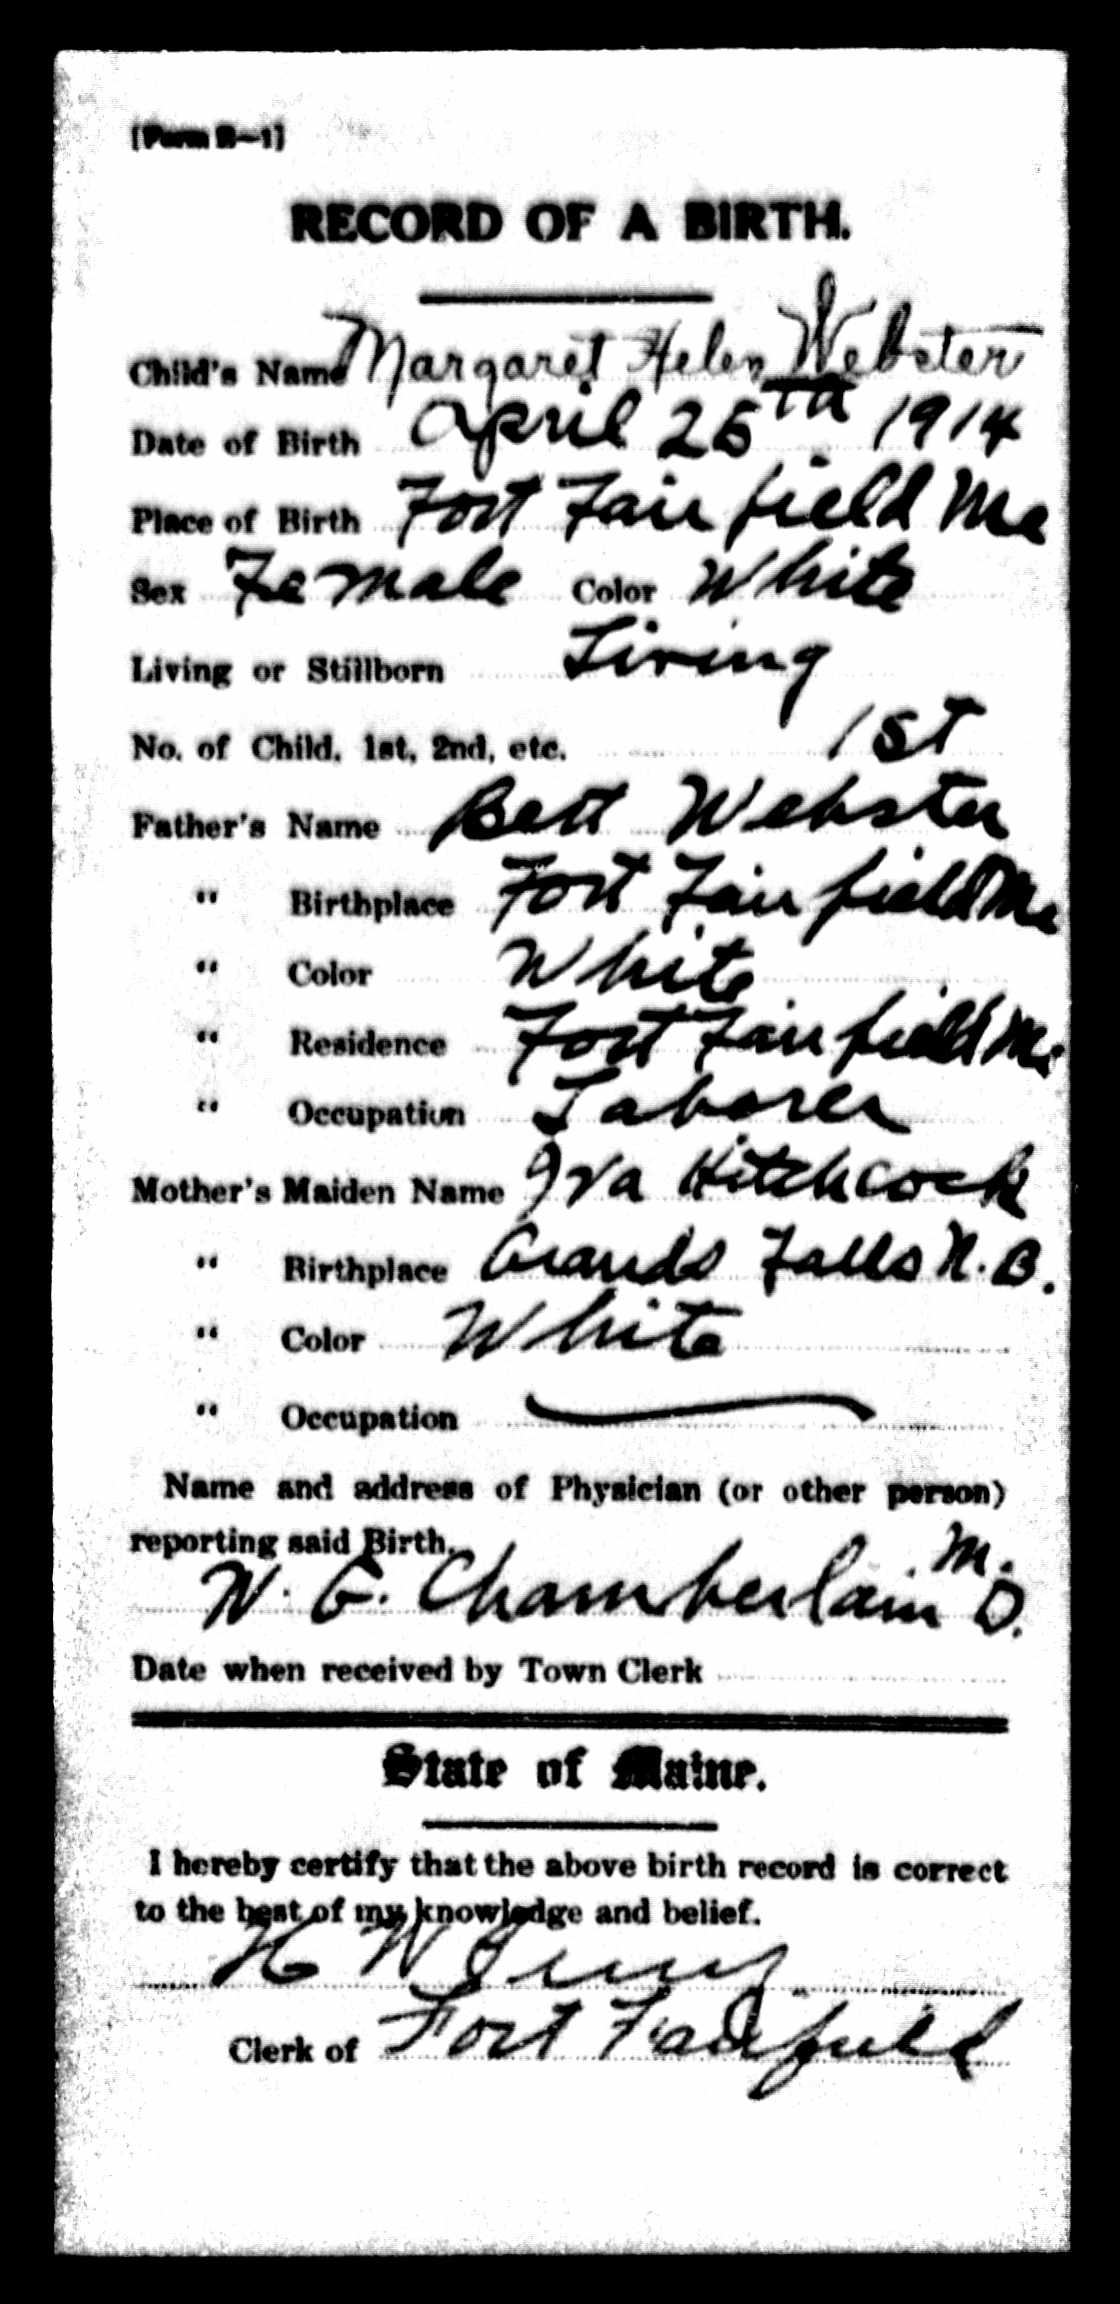 [Form R—1]
RECORD OF A BIRTH.
Child's Name Margaret Helen Webster
Date of Birth April 25th 1914
Place of Birth Fort Fairfield Me
Sex Female Color White
Living or Stillborn Living
No. of Child, 1st, 2nd, etc. 1st
Father's Name Bert Webster
" Birthplace Fort Fairfield Me
" Color White
" Residence Fort Fairfield Me.
" Occupation Laborer
Mother's Maiden Name Iva Hitchcock
" Birthplace Grands Falls N. B.
" Color White
" Occupation
Name and address of Physician (or other person)
reporting said Birth.
W. G. Chamberlain M. D.
Date when received by Town Clerk
State of Maine.
I hereby certify that the above birth record is correct
to the best of my knowledge and belief.
H W
Clerk of Fort Fairfield